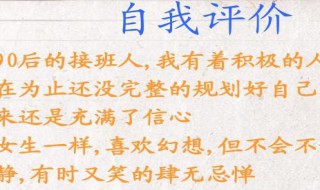 自我评价
90后的接班人,我有着积极的人
在为止还没完整的规划好自己
来还是充满了信心
女生一样,喜欢幻想,但不会不
静,有时又笑的肆无忌惮